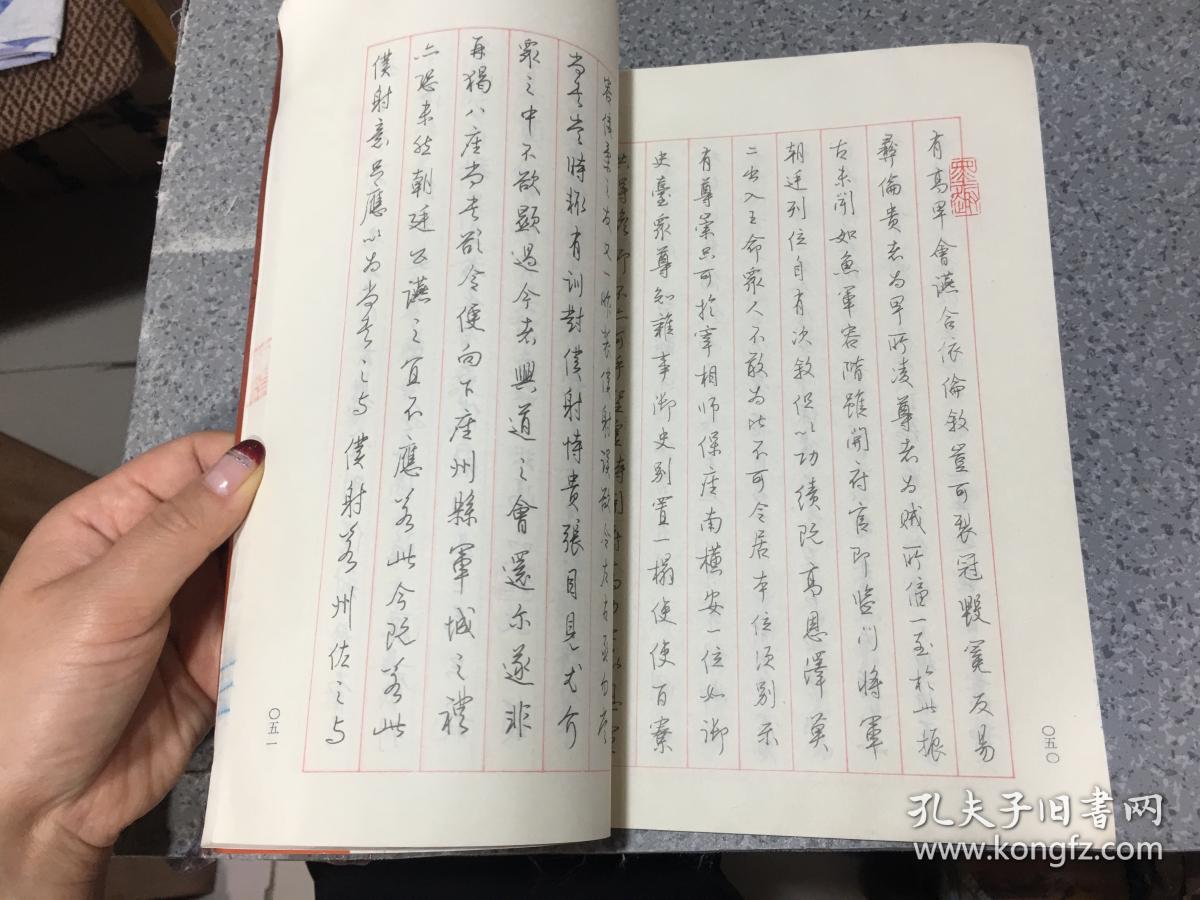 有高卑會讌合依倫敘豈可裂冠毀冕反易
彝倫貴者為卑所凌尊者為賊所偪一至於此振
古未聞如魚軍容階雖開府官即監門將軍
朝廷列位自有次敘但以功績既高恩澤莫
二出入王命眾人不敢為比不可令居本位須別示
有尊崇只可於宰相師保座南橫安一位如御
史臺眾尊知雜事御史別置一榻使使百寮
〇五〇
又一昨裴僕射誤欲令左右丞勾當
尚書當時輒有訓對僕射恃貴張目見尤介
眾之中不欲顯過今者興道之會還尔遂非
再猲八座尚書欲令便向下座州縣軍城之禮
亦恐未然朝廷公讌之宜不應若此今既若此
僕射意只應以為尚書之与 僕射若州佐之与
〇五一
孔夫子旧書网
www.kongfz.com